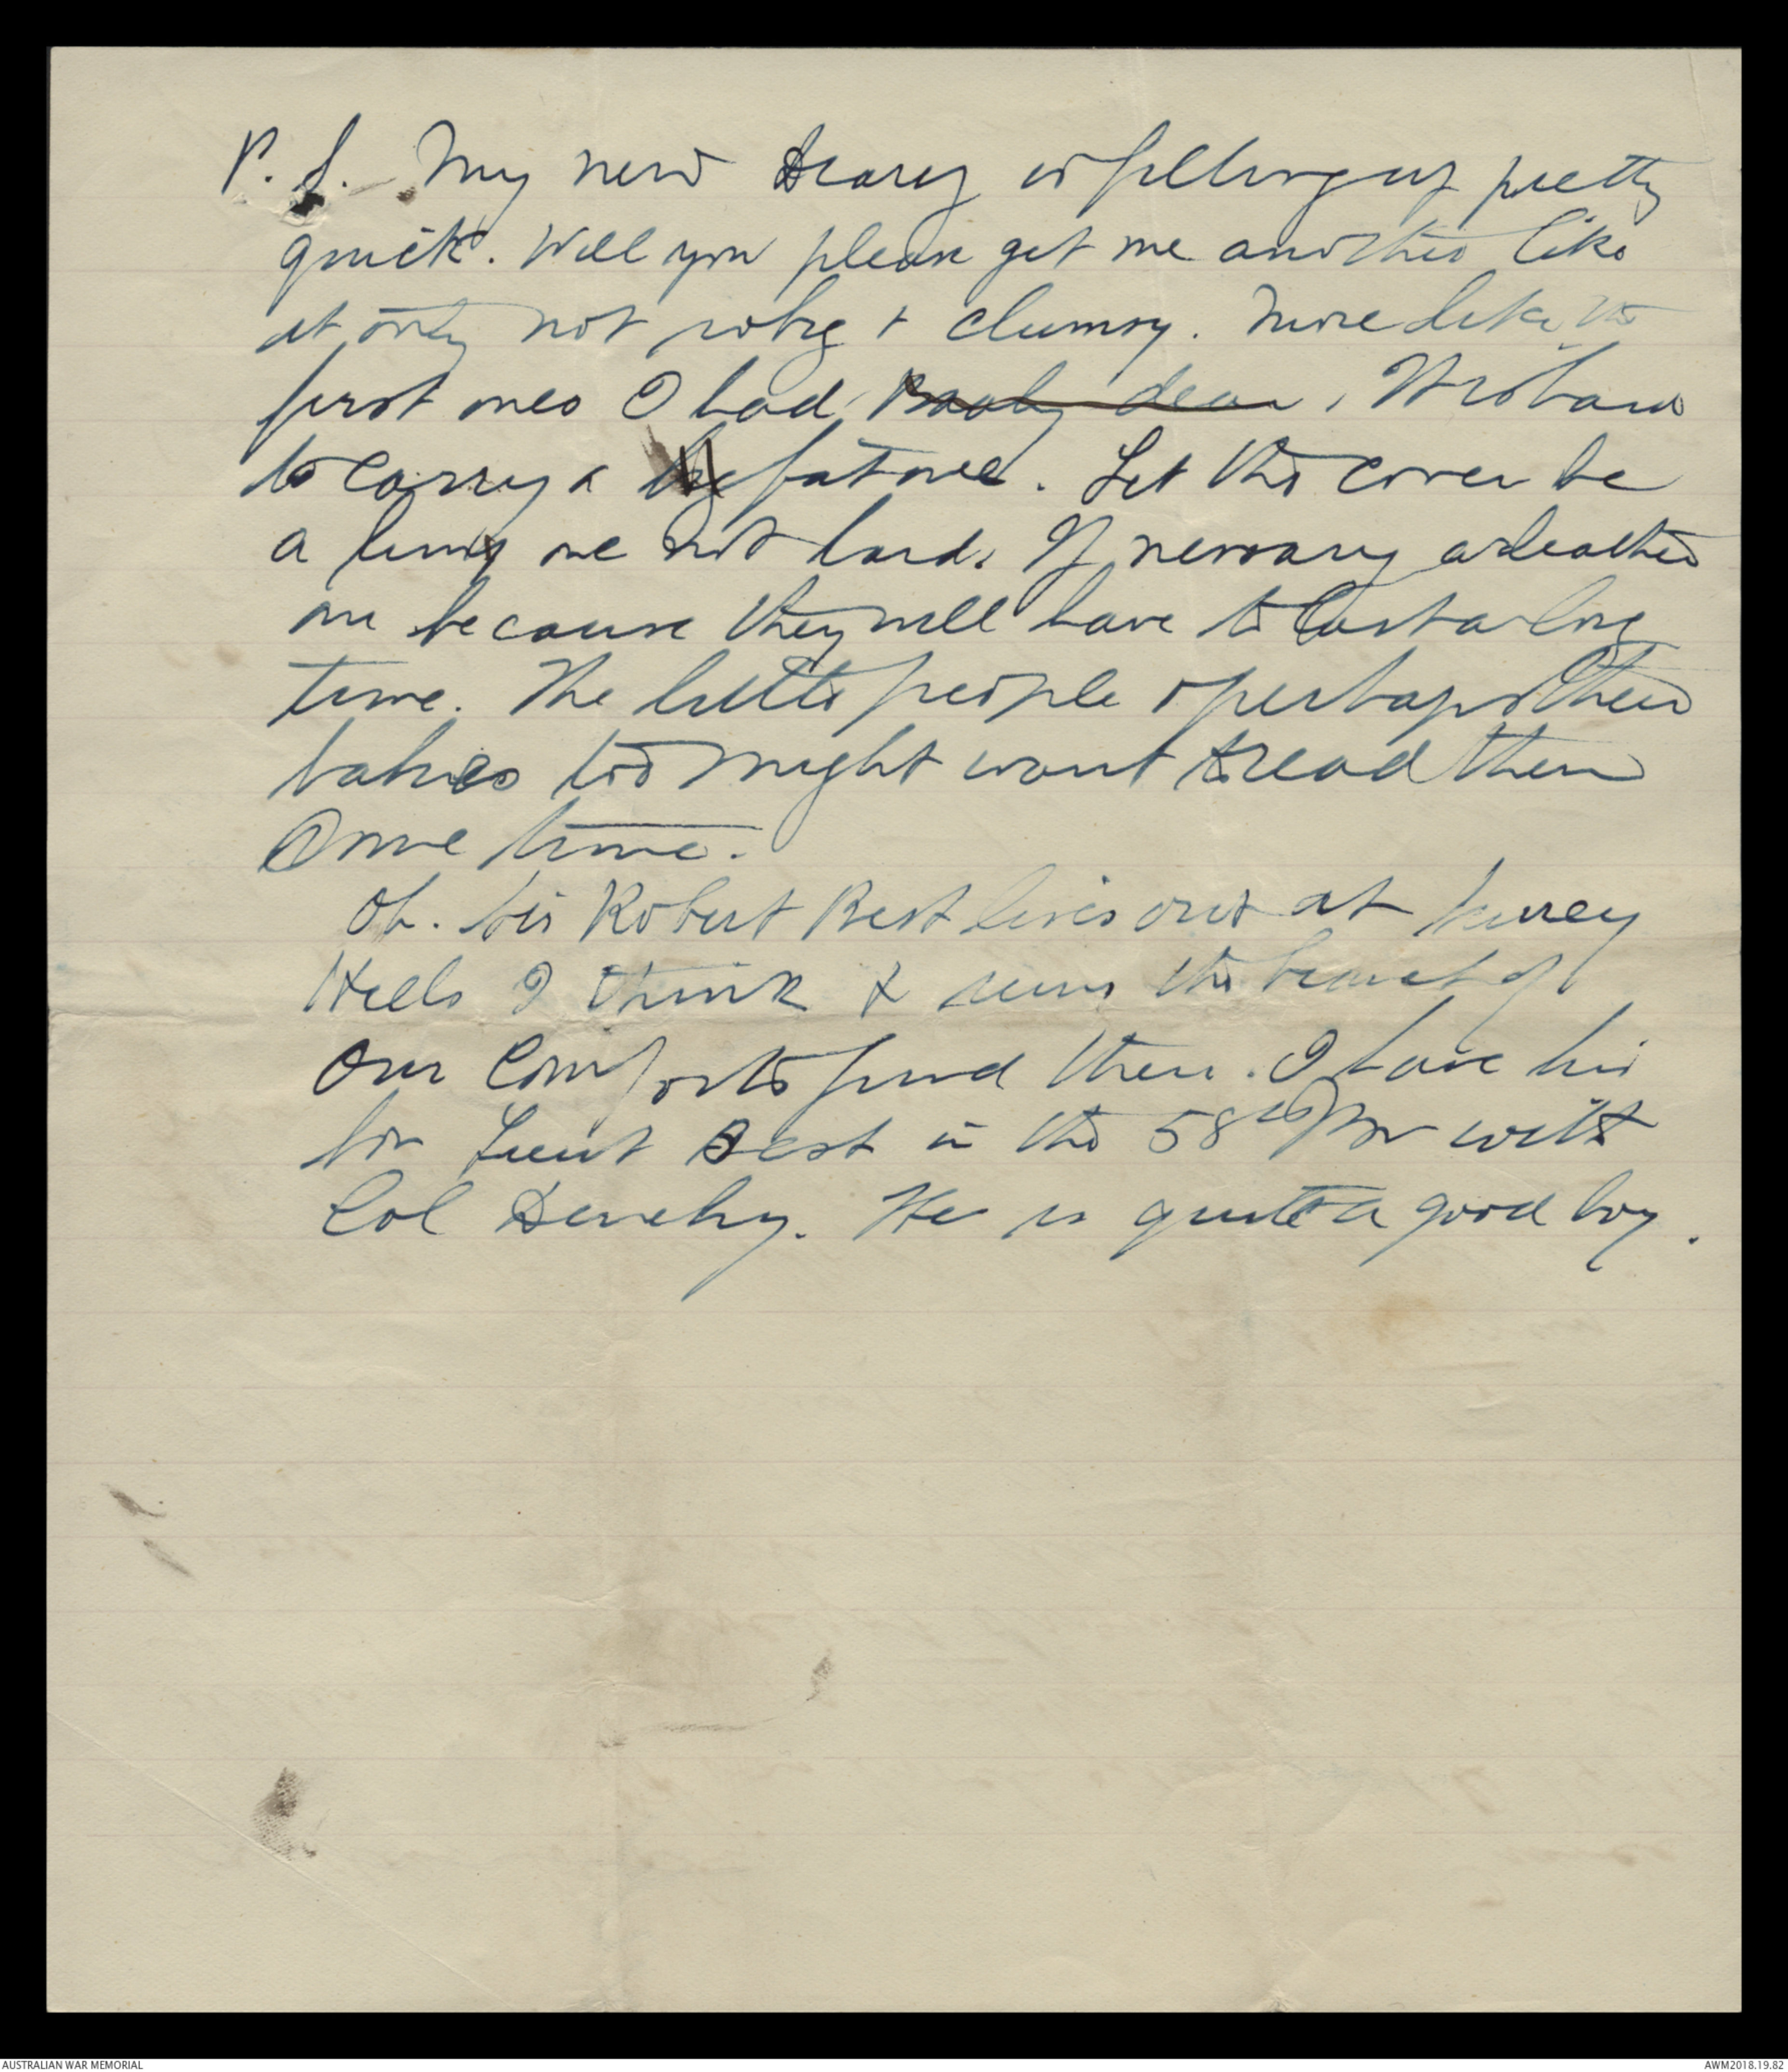 P.S. My new diary is filling up pretty
quick. Will you please get me another like
it only not so big & clumsy. More like the
first ones I had, dear, It is hard
to carry a fat one. Let the cover be
a limp one not hard. If necessary a leather
one because they will have to last a long
time. The little people & perhaps their
babies too might want to read them
some time.
Oh. Sir Robert Best lives out at Surrey
Hills I think & runs the branch of
our Comforts fund there. I have his
son Lieut Best in the 58th Bn with
Col Denehy. He is quite a good boy.
AUSTRALIAN WAR MEMORIAL
AWM2018.19.82